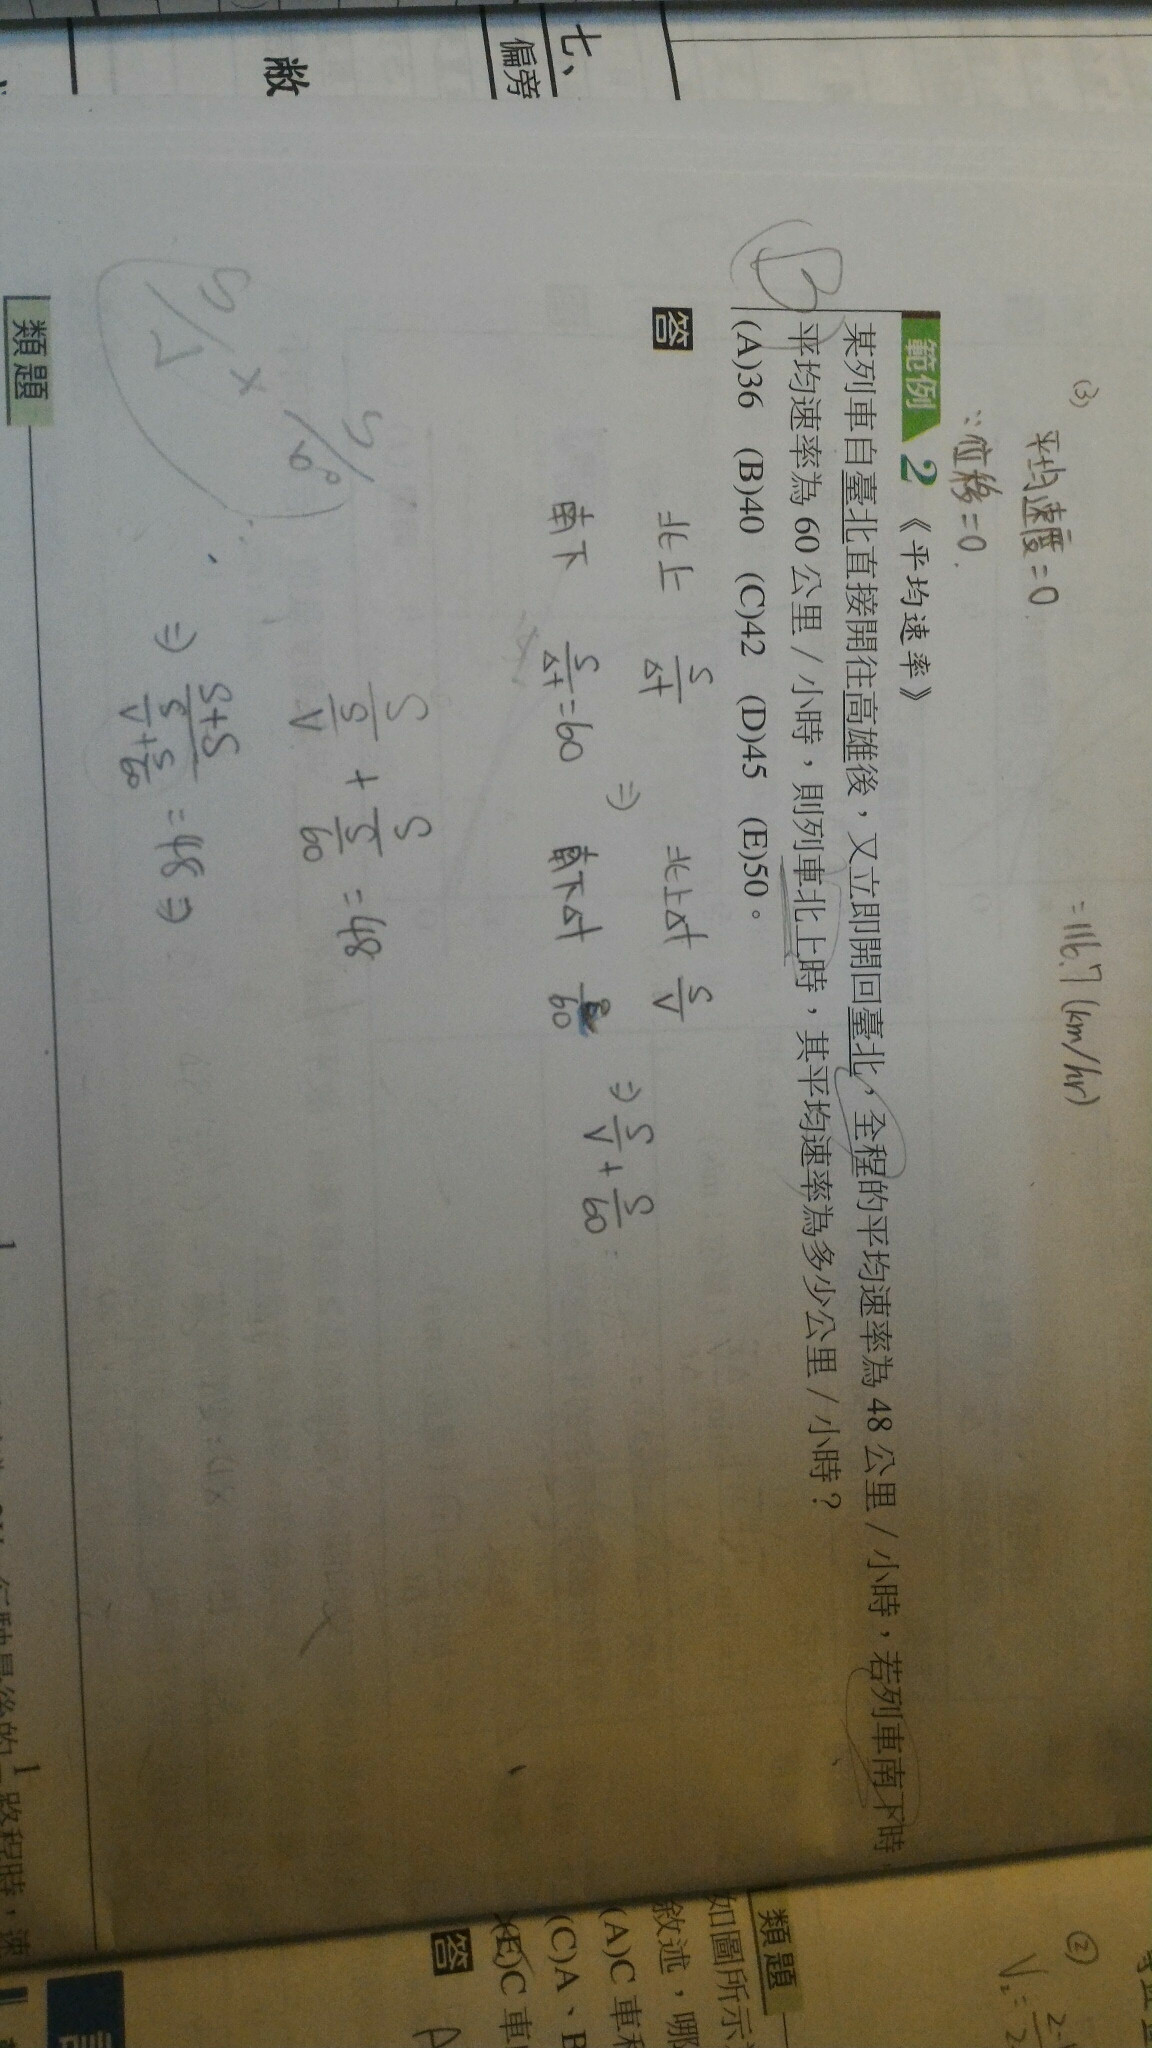 (3)
平均速度=0
∵位移=0.
=116.7 (km/hr)
範例 2 《平均速率》
某列車自臺北直接開往高雄後,又立即開回臺北,全程的平均速率為 48 公里/小時,若列車南下時,
平均速率為 60 公里/小時,則列車北上時,其平均速率為多少公里/小時?
(A)36 (B)40 (C)42 (D)45 (E)50。
B
答
北上 S/Δt ⇒ 北上Δt S/V ⇒ S/V + S/60
南下 S/Δt = 60 南下Δt S/60
S/(S/V) + S/(S/60) = 48
⇒ (S+S)/(S/V + S/60) = 48 ⇒
類題
七、
偏旁
敝
類題
如圖所示
敘述,哪
(A)C 車
(C)A、B
(E)C 車
答
A
②